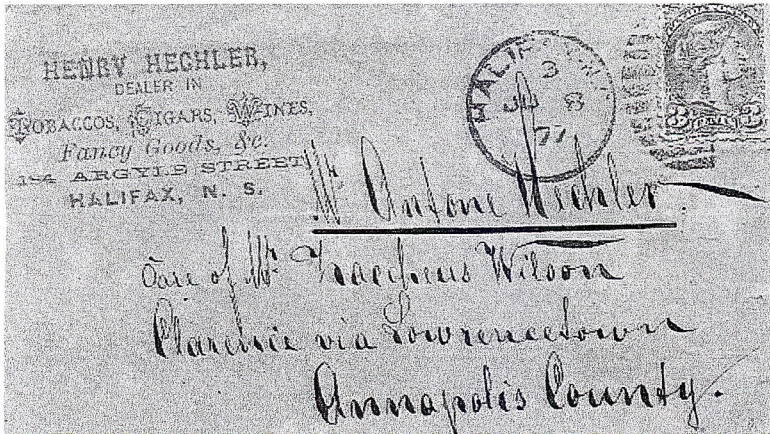 HENRY HECHLER,
DEALER IN
TOBACCOS, CIGARS, WINES,
Fancy Goods, &c.
184 ARGYLE STREET
HALIFAX, N. S.
HALIFAX, N.S.
3
JU 8
77
3 CENTS 3
Mr Antone Hechler.
Care of Mr. Zaccheus Wilson
Clarence via Lowrencetown
Annapolis County.